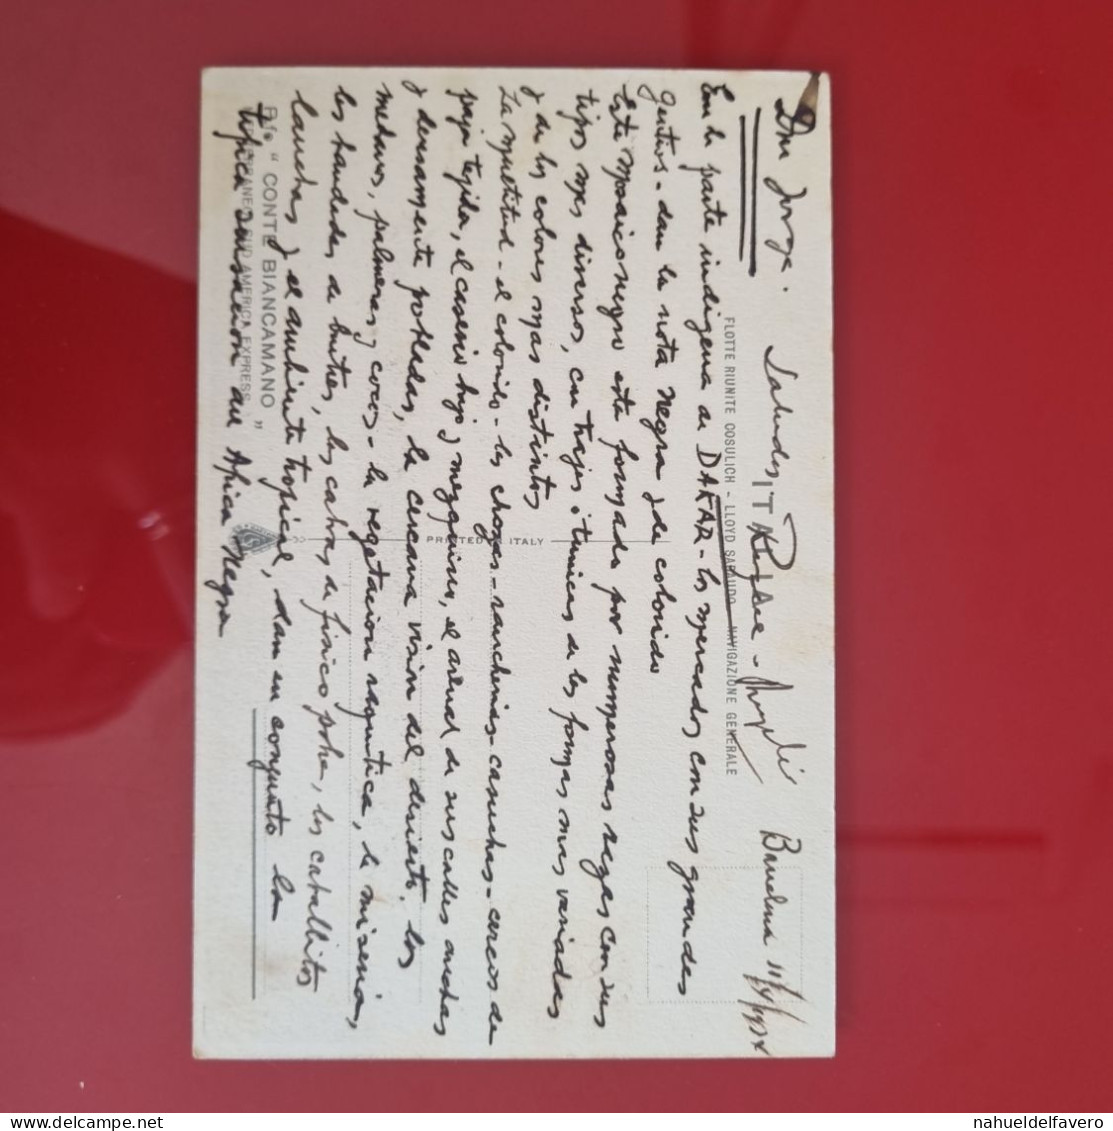 Don Jorge. Saludos Barcelona 11/4/1934
ITALIA
FLOTTE RIUNITE COSULICH - LLOYD SABAUDO - NAVIGAZIONE GENERALE
En la parte indigena de DAKAR - los mercados con sus grandes
gentíos - dan la nota negra y de colorido
Este mosaico negro esta formado por numerosas razas con sus
tipos mas diversos, con trajes i tunicas de las formas mas variadas
y de los colores mas distintos
La multitud - el colorido - las chozas - rancherias - casuchas - cercos de
paja tejida, el caserio bajo y mezquino, el arenal de sus calles anchas
y densamente pobladas, la cercana vision del desierto, los
medanos, palmeras y cocos - la vegetacion raquitica, la miseria,
las bandadas de buitres, las cabras de fisico pobre, los caballitos
lanchas y el ambiente tropical, dan en conjunto la
tipica sensacion del Africa Negra
PRINTED IN ITALY
P.fo "CONTE BIANCAMANO"
SUD AMERICA EXPRESS
nahueldelfavero